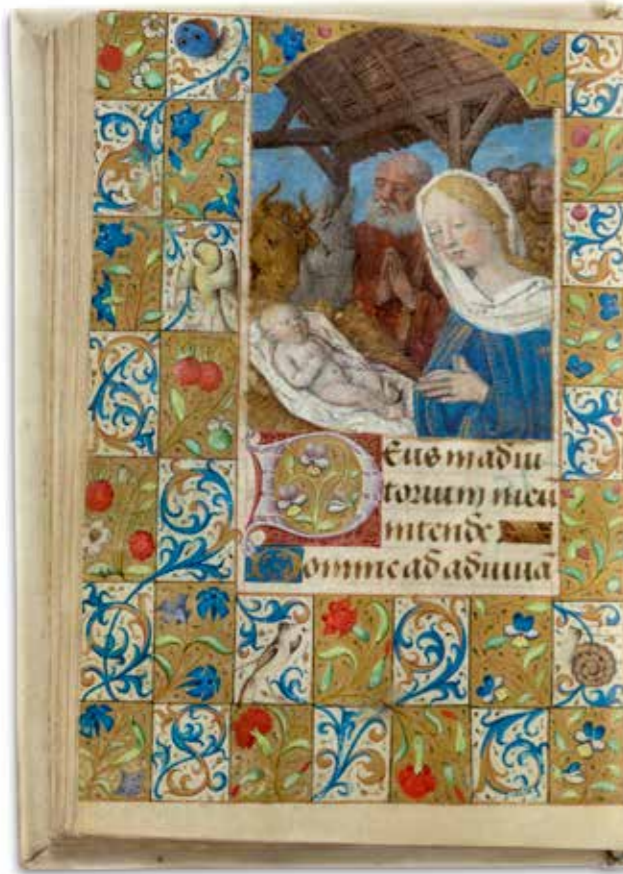 Deus in adiu
torium meu
intende
Domine ad adiuuā